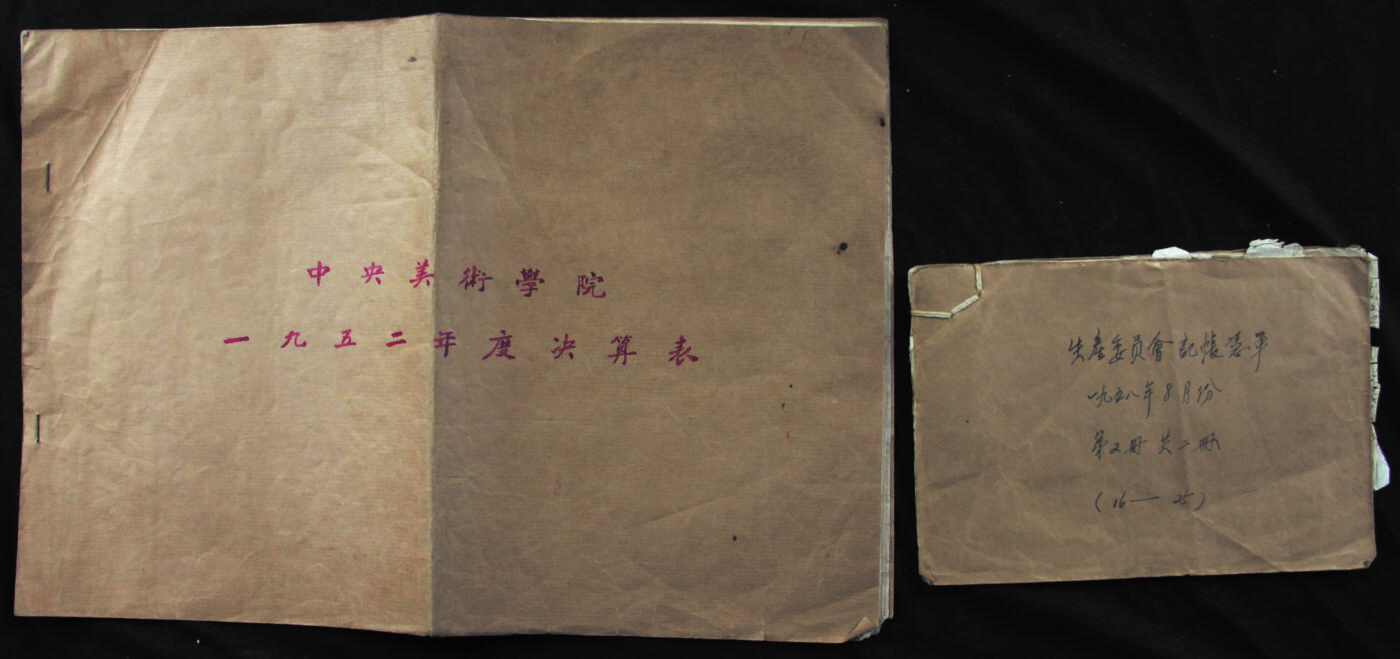 中央美術學院
一九五二年度决算表
生產委员會記帳憑單
一九五八年8月份
第2冊共二冊
(16—25)